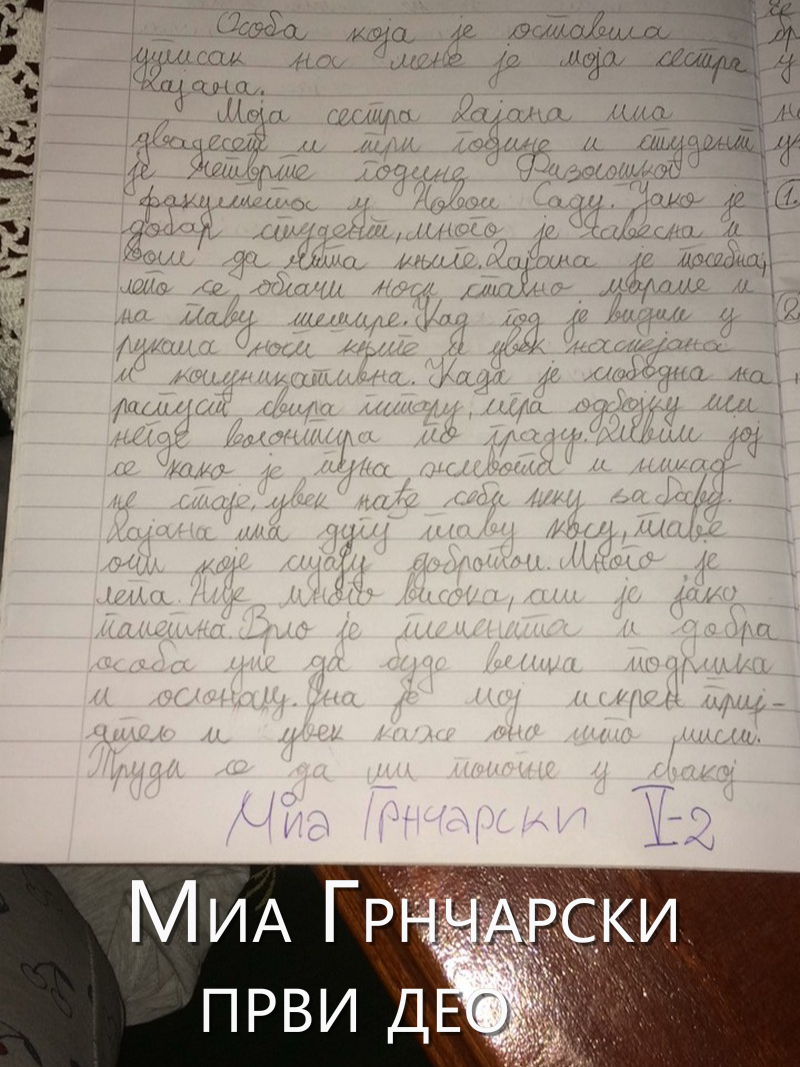 Особа која је оставила
утисак на мене је моја сестра
Дајана.
Моја сестра Дајана има
двадесет и три године и студент
је четврте године Филозошког
факултета у Новом Саду. Јако је
добар студент, много је савесна и
воли да чита књиге. Дајана је посебна,
лепо се облачи носи стално мараме и
на глави шешире. Кад год је видим у
рукама носи књиге и увек насмејана
и комуникативна. Када је слободна на
распуст свира гитару, игра одбојку или
негде волонтира по граду. Дивим јој
се како је пуна живота и никад
не стаје, увек нађе себи неку забаву.
Дајана има дугу плаву косу, плаве
очи које сијају добротом. Много је
лепа. Није много висока, али је јако
паметна. Врло је племенита и добра
особа уме да буде велика подршка
и ослонац. Она је мој искрен приј-
атељ и увек каже оно што мисли.
Труди се да ми помогне у свакој
Миа Грнчарски V-2
че
бр
у
1.
2
Миа Грнчарски
први део